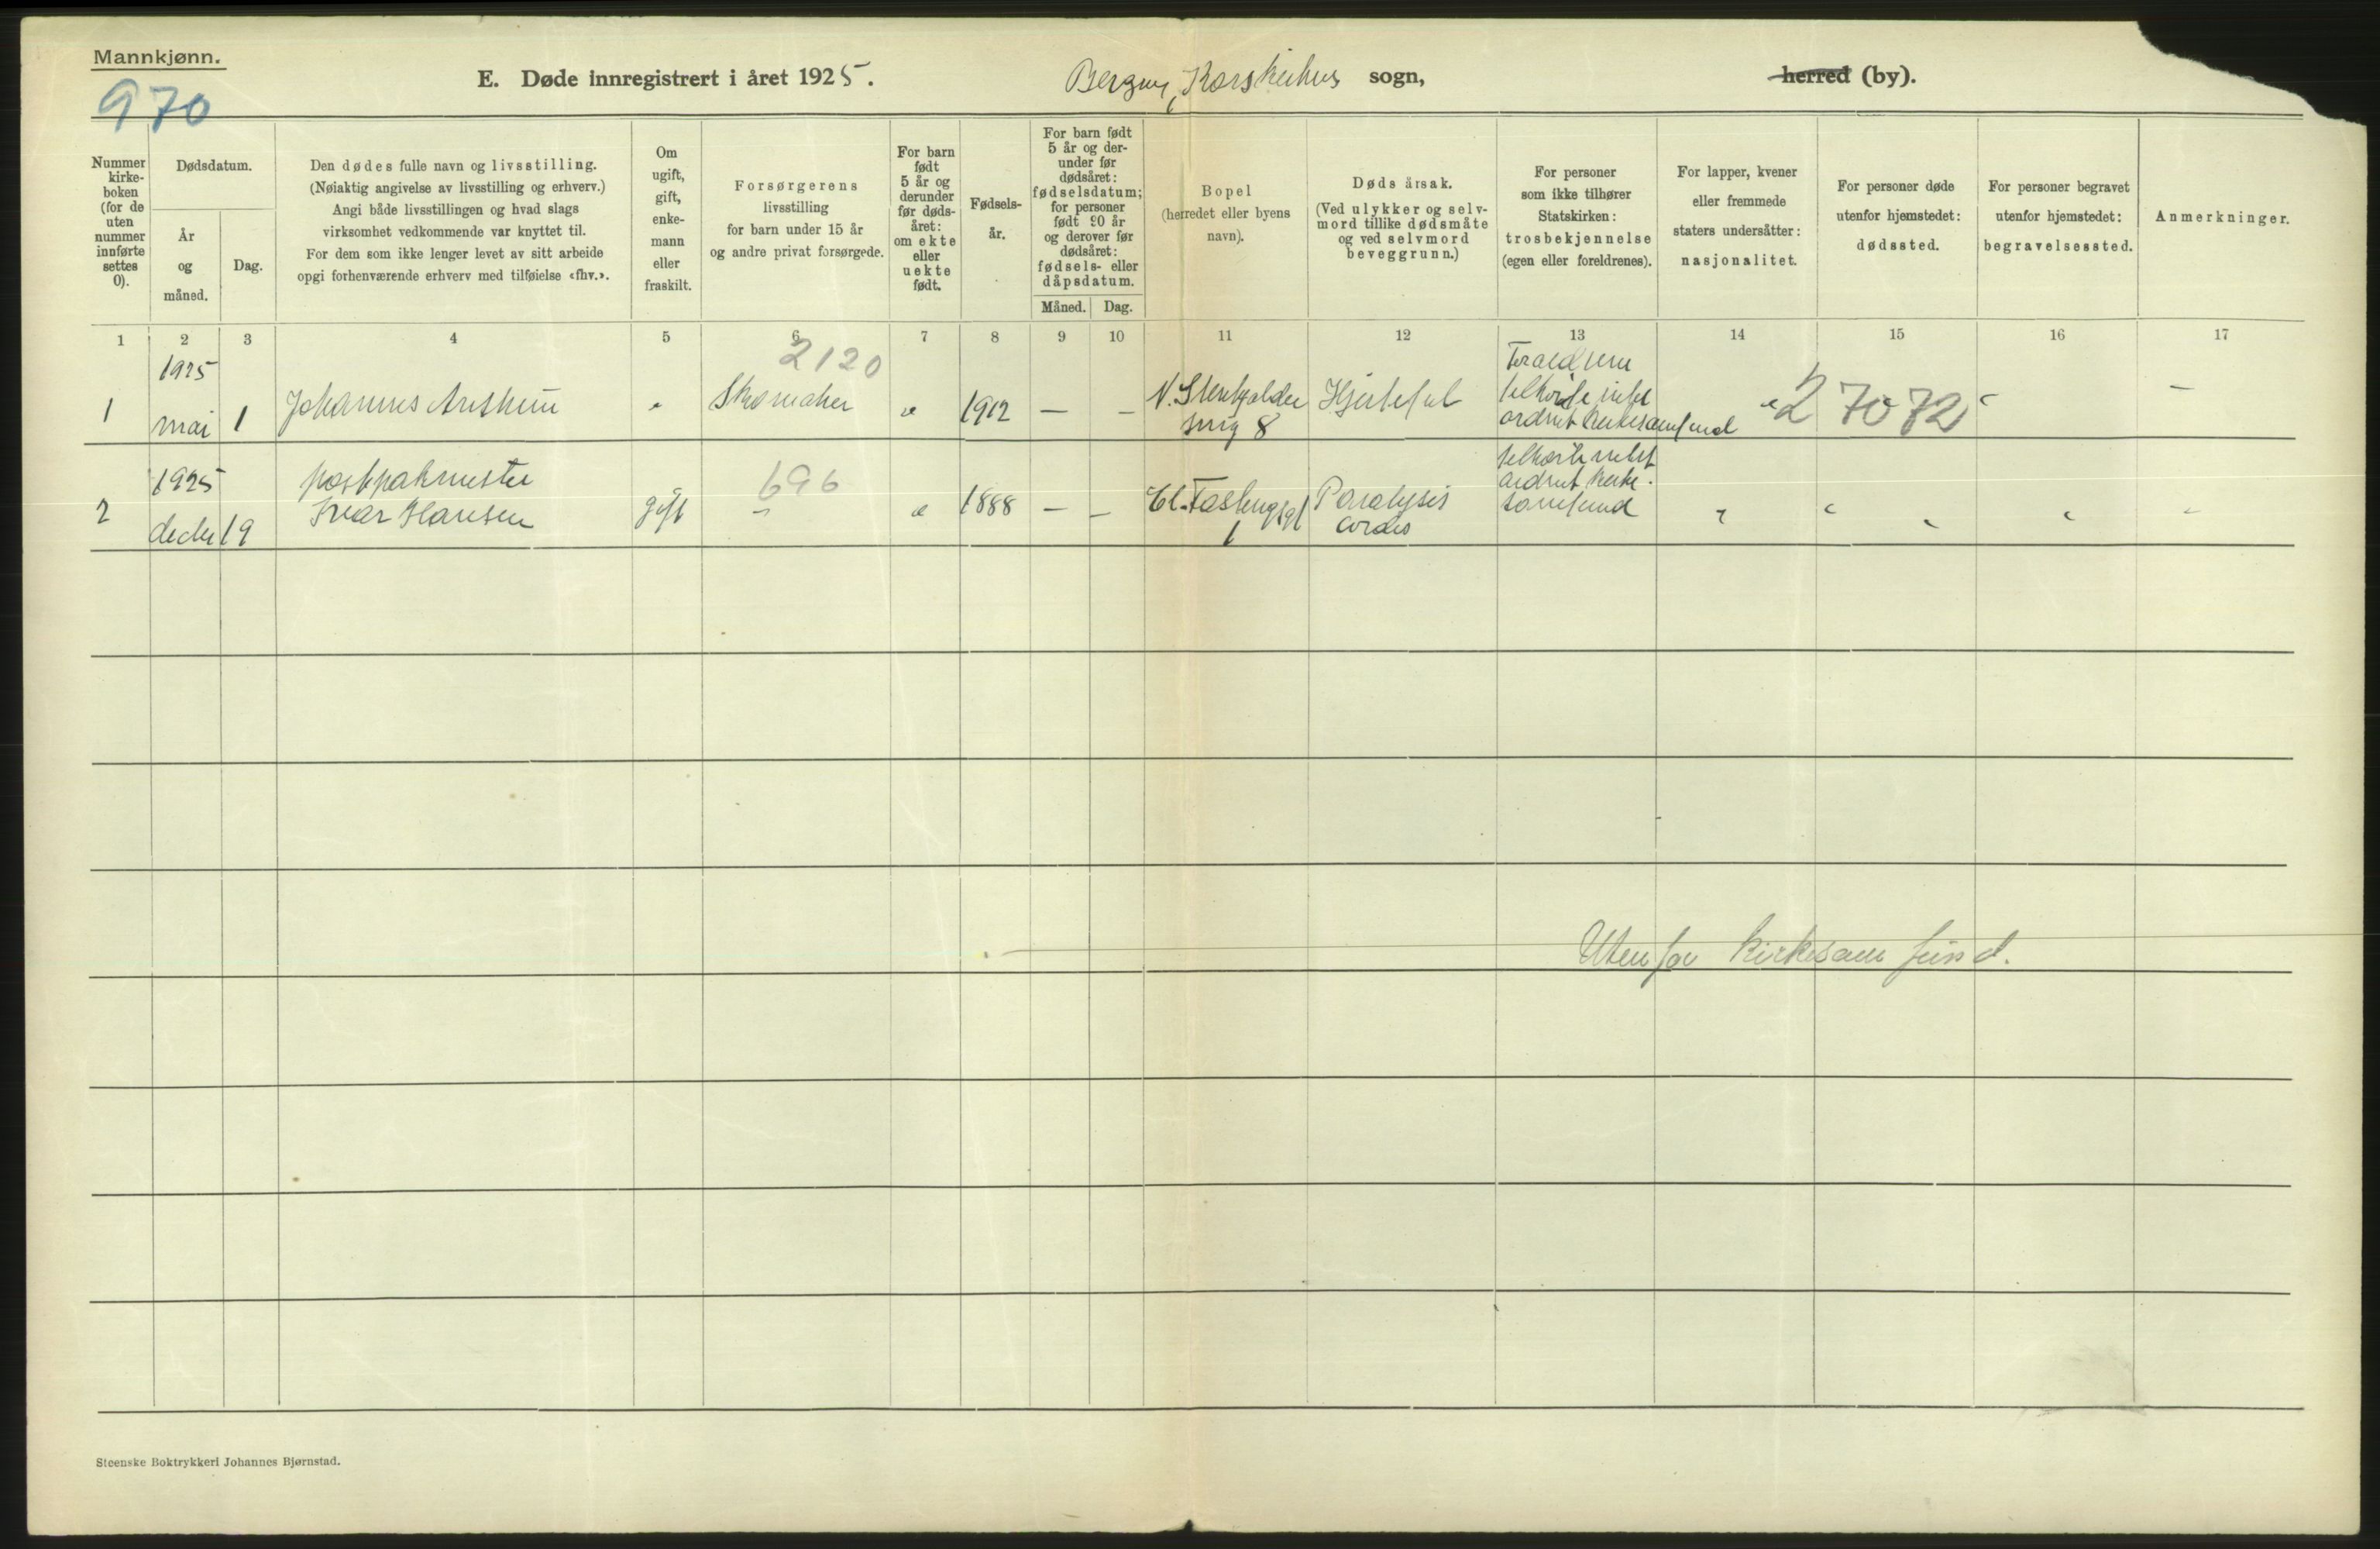 Mannkjønn.
970
E. Døde innregistrert i året 1925.
Bergen, Korskirkens sogn,
herred (by).
Nummer
kirke-
boken
(for de
uten
nummer
innførte
settes
0).
Dødsdatum.
År
og
måned.
Dag.
Den dødes fulle navn og livsstilling.
(Nøiaktig angivelse av livsstilling og erhverv.)
Angi både livsstillingen og hvad slags
virksomhet vedkommende var knyttet til.
For dem som ikke lenger levet av sitt arbeide
opgi forhenværende erhverv med tilføielse «fhv.».
Om
ugift,
gift,
enke-
mann
eller
fraskilt.
Forsørgerens
livsstilling
for barn under 15 år
og andre privat forsørgede.
For barn
født
5 år og
derunder
før døds-
året:
om ekte
eller
uekte
født.
Fødsels-
år.
For barn født
5 år og der-
under før
dødsåret:
fødselsdatum;
for personer
født 90 år
og derover før
dødsåret:
fødsels- eller
dåpsdatum.
Måned. Dag.
Bopel
(herredet eller byens
navn).
Døds årsak.
(Ved ulykker og selv-
mord tillike dødsmåte
og ved selvmord
beveggrunn.)
For personer
som ikke tilhører
Statskirken:
trosbekjennelse
(egen eller foreldrenes).
For lapper, kvener
eller fremmede
staters undersåtter:
nasjonalitet.
For personer døde
utenfor hjemstedet:
dødssted.
For personer begravet
utenfor hjemstedet:
begravelsessted.
Anmerkninger.
1 2 3 4 5 6 7 8 9 10 11 12 13 14 15 16 17
1925
2120
1 mai 1 Johannes " Skomaker " 1912 — —
smig 8
27072
—
1925
2 19
Ivar Hansen
gift
696
—
" 1888 — —
1
Paralysis
cordis
samfund
Utenfor kirkesamfund.
Steenske Boktrykkeri Johannes Bjørnstad.